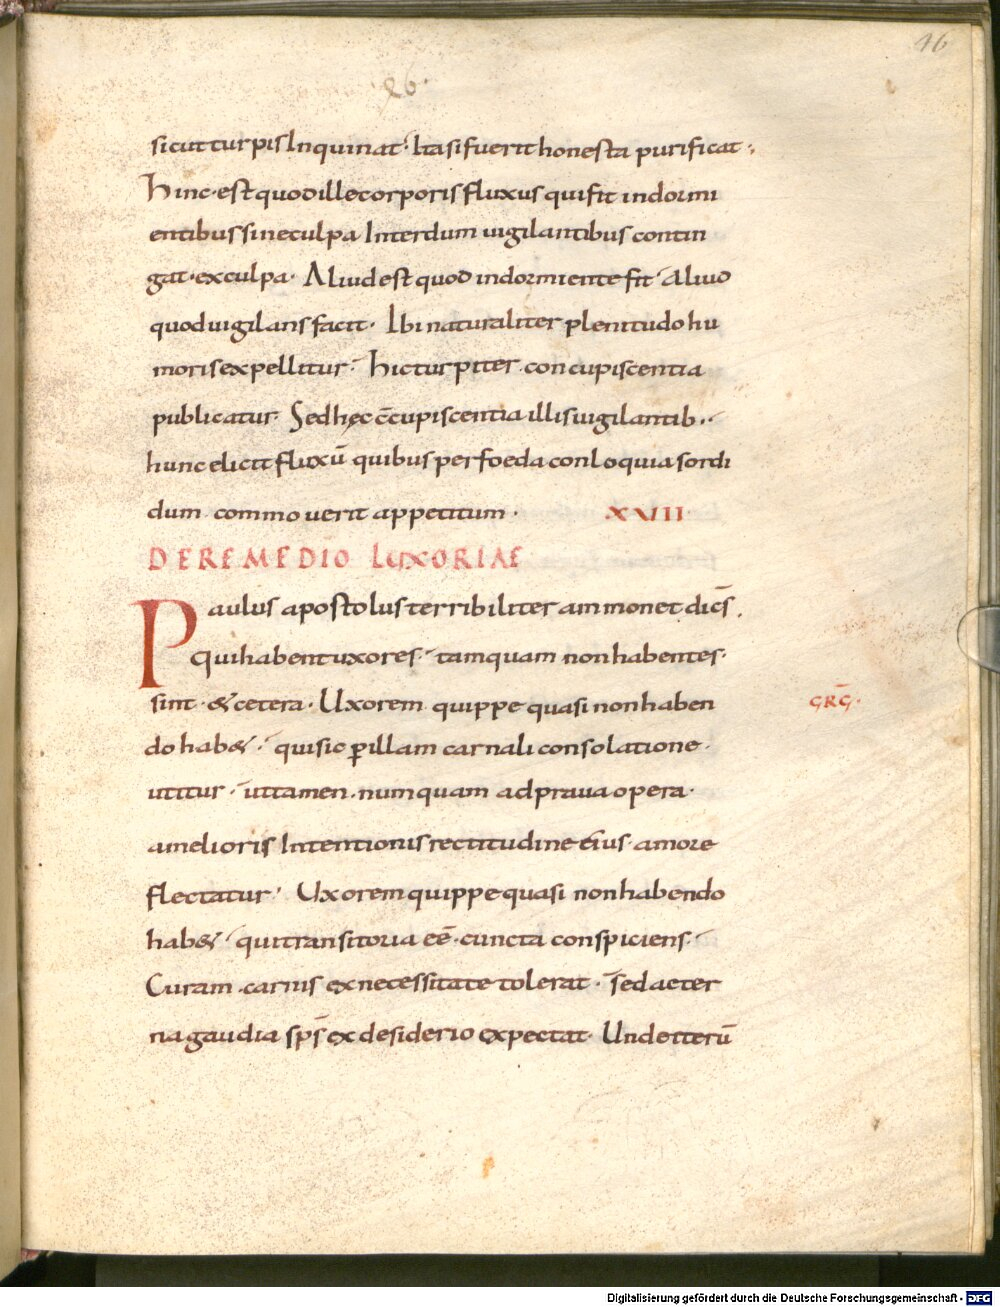 46
26
sicut turpis Inquinat. Ita si fuerit honesta purificat.
hinc est quod ille corporis fluxus qui fit in dormi
entibus sine culpa Interdum uigilantibus contin
gat. ex culpa. Aliud est quod in dormiente fit. Aliud
quod uigilans facit. Ibi naturaliter plenitudo hu
moris expellitur. hic turpiter. concupiscentia
publicatur. Sed hęc c̄cupiscentia illis uigilantib.
hunc elicit fluxū quibus per foeda conloquia sordi
dum commouerit appetitum. XXIII
DE REMEDIO LUXORIAE
Paulus apostolus terribiliter ammonet dic̄s.
qui habent uxores. tamquam non habentes.
sint. & cetera. Uxorem quippe quasi non haben
GRḠ.
do hab&. qui sic ꝑ illam carnali consolatione.
utitur. ut tamen. numquam ad praua opera.
a melioris Intentionis rectitudine eius. amore
flectatur. Uxorem quippe quasi non habendo
hab&. qui transitoria eē. cuncta conspiciens.
Curam. carnis ex necessitate tolerat. sed aeter
na gaudia sp̄s ex desiderio expectat. Unde iterū
Digitalisierung gefördert durch die Deutsche Forschungsgemeinschaft - DFG